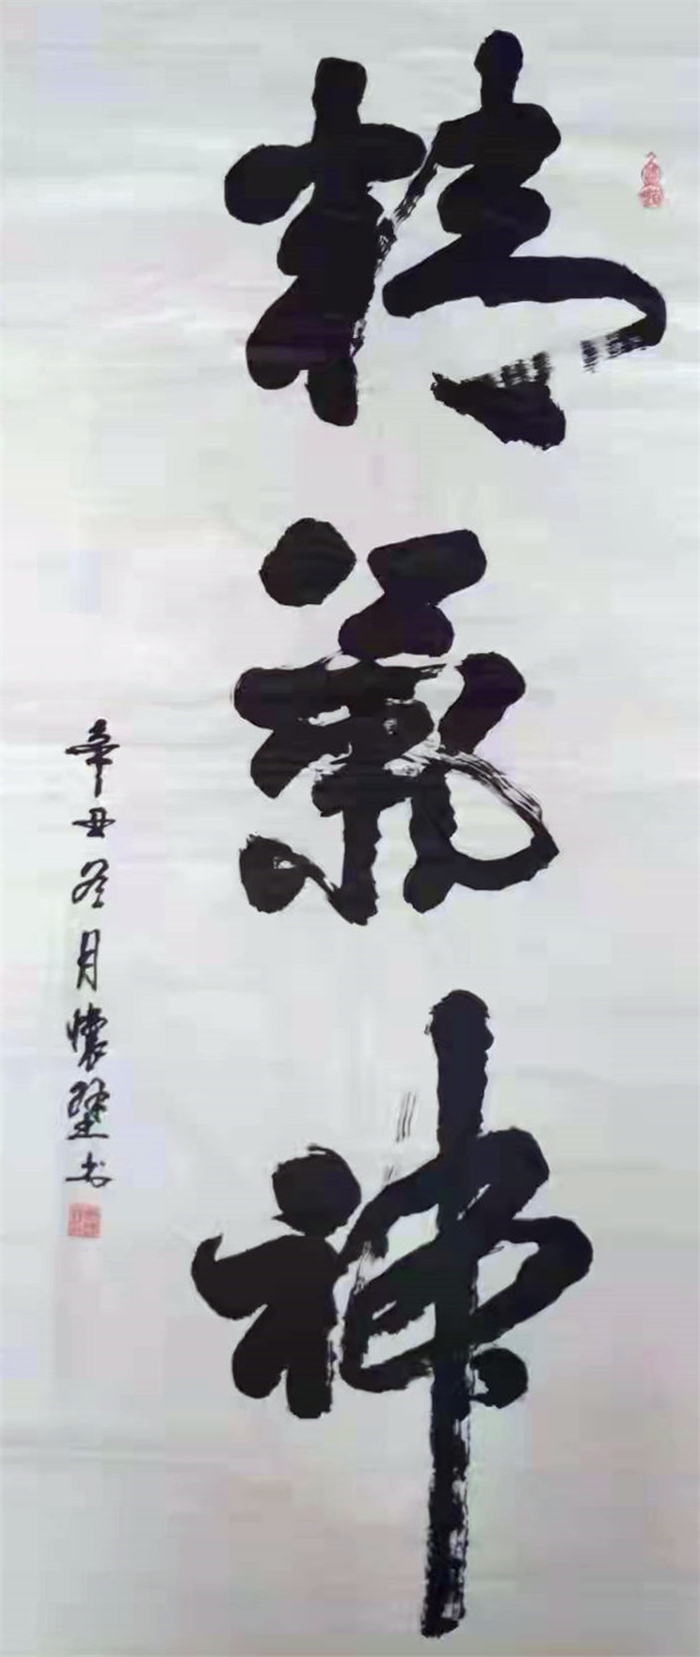 精氣神
辛丑冬月懷堃书